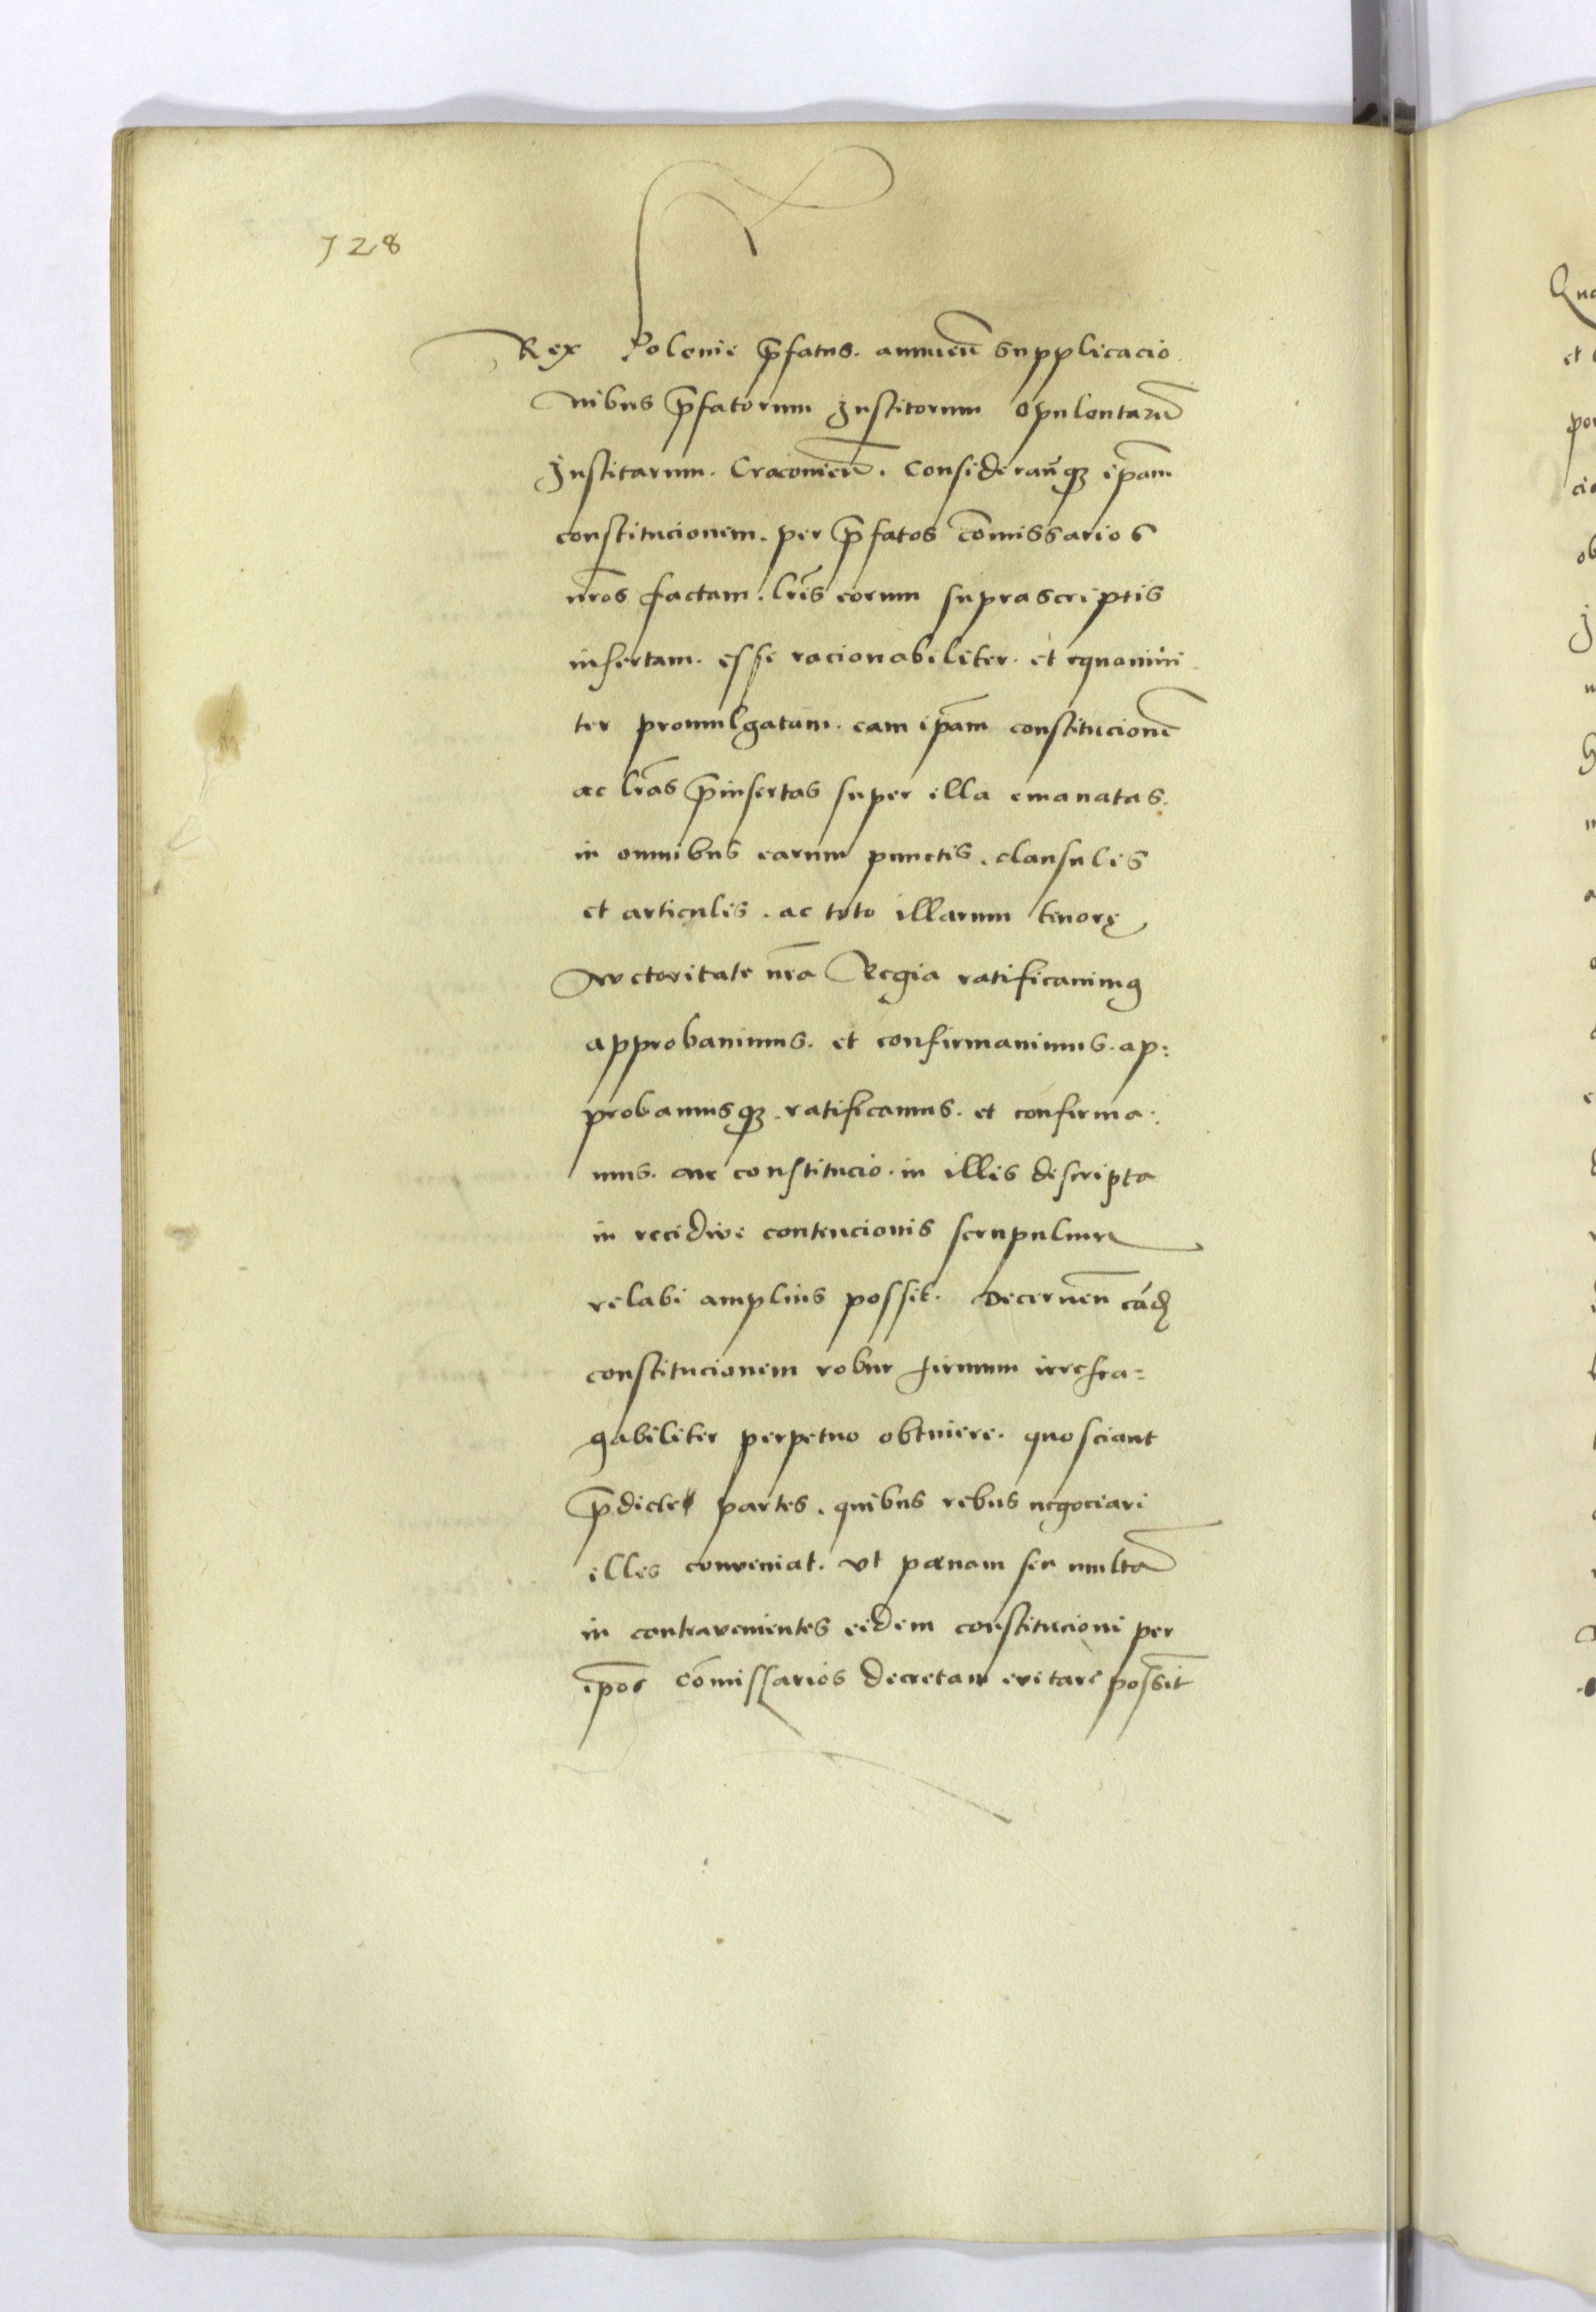 128
Rex Polonie p̄fatus. annuen̄ supplicacio
nibus p̄fatorum Institorum opulentarū
Institarum. Cracouien̄. Consideran̄q ip̄am
constitucionem. per p̄fatos com̄issarios
nr̄os factam. lr̄is eorum suprascriptis
insertam. esse racionabiliter. et equanimi
ter promulgatam. eam ip̄am constitucionē
ac lr̄as p̄insertas super illa emanatas.
in omnibus earum punctis. clausulis
et articulis. ac toto illarum tenorę
Auctoritate nr̄a Regia ratificauimꝯ
approbauimus. et confirmauimus. ap:
probamusqꝫ. ratificamus. et confirma:
mus. ne constitucio. in illis descripta
in recidive contencionis scrupulum
relabi amplius possit. Decernen̄ eād
constitucionem robur firmum irrefra=
gabiliter perpetuo obtinere. quo sciant
p̄dicte partes. quibus rebus negociari
illis conveniat. vt pœnam seu multā
in contravenientes eidem constitucioni per
ip̄os com̄issarios decretam evitare possīt
Qua
et